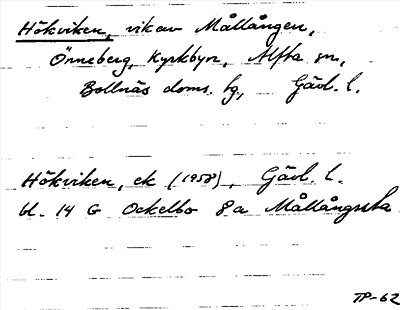 Hökviken, vik av Mållången,
Önneberg, Kyrkbyn, Alfta sn,
Bollnäs doms. hg, Gävl. l.
Hökviken, ek (1958), Gävl. L.
bl. 14 G Ockelbo 8 a Mållångssta
TP-62